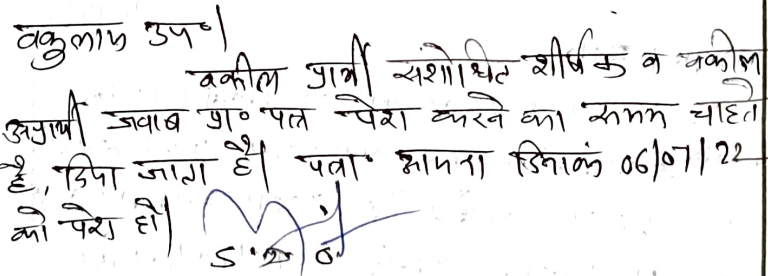 वकुलाय उप०।
वकील प्रार्थी संशोधित शीर्षक व वकील
अप्रार्थी जवाब प्रा० पत्र पेश करने का समय चाहते
है, दिया जाता है। पत्रा० आयन्दा दिनांक 06/07/22
को पेश हो।